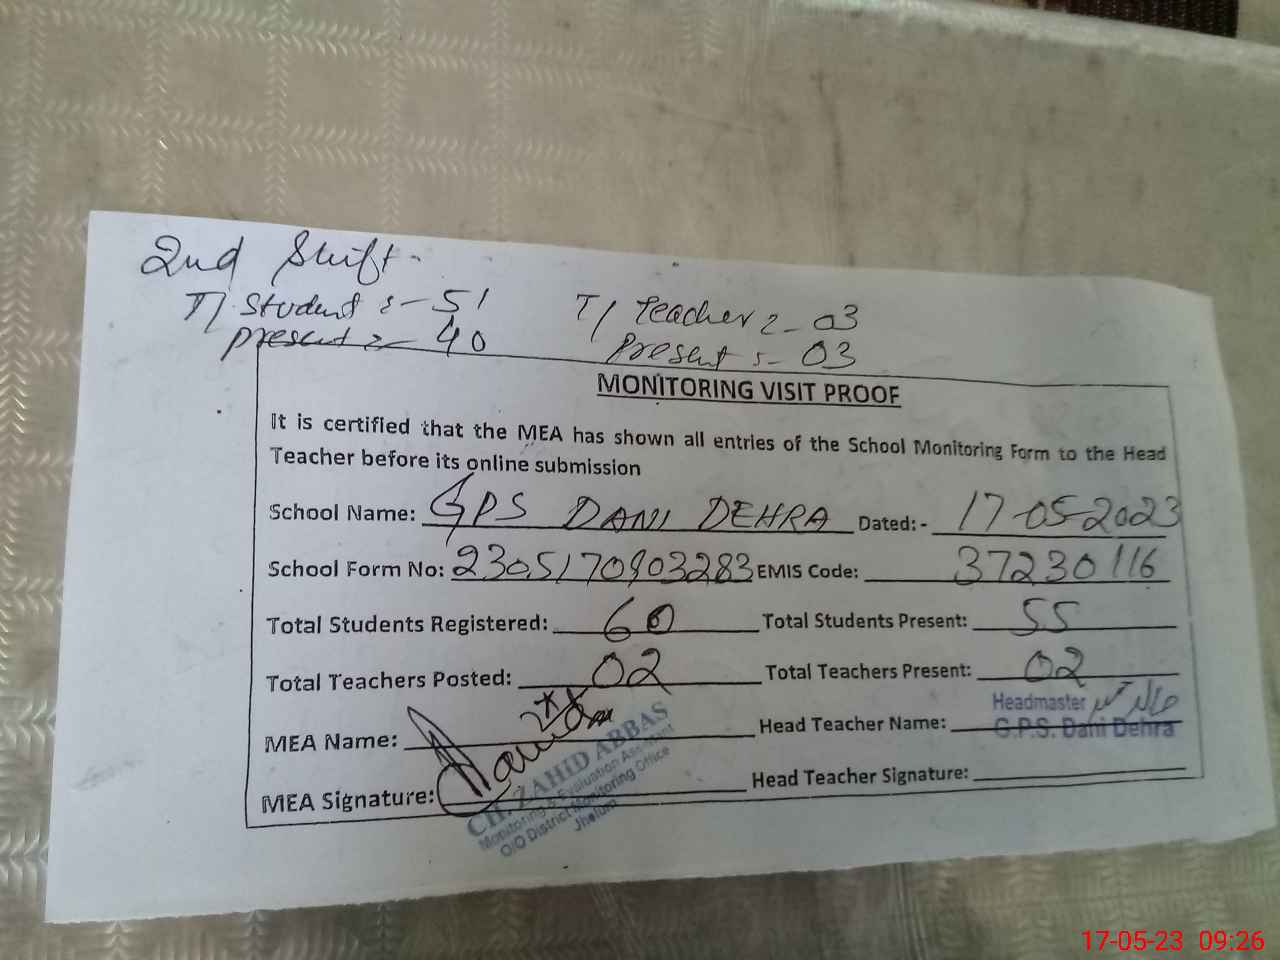 2nd Shift
T/ Student :- 51 T/ Teacher :- 03
present :- 40 Present :- 03
MONITORING VISIT PROOF
It is certified that the MEA has shown all entries of the School Monitoring Form to the Head
Teacher before its online submission
School Name: GPS DANI DEHRA Dated:- 17-05-2023
School Form No: 2305170903283 EMIS Code: 37230116
Total Students Registered: 60 Total Students Present: 55
Total Teachers Posted: 02 Total Teachers Present: 02
MEA Name: Head Teacher Name: Headmaster
G.P.S. Dani Dehra
MEA Signature: Head Teacher Signature:
CH. ZAHID ABBAS
Monitoring & Evaluation Assistant
O/O District Monitoring Office
Jhelum
17-05-23 09:26